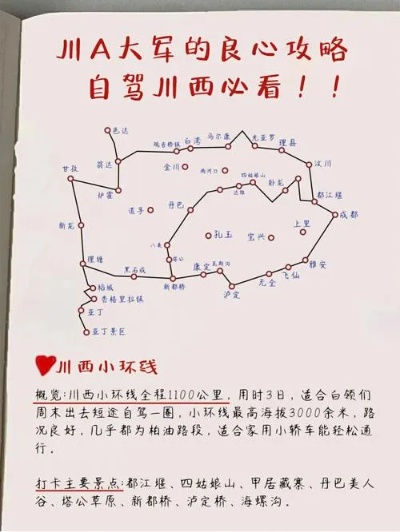 川A大军的良心攻略
自驾川西必看！！
色达
翁达
炉霍
甘孜
新龙
理塘
稻城
香格里拉镇
亚丁
亚丁景区
观音桥镇
白湾
马尔康
尤亚罗
理县
汶川
都江堰
成都
金川
两河口
四姑娘山
卧龙
达维
丹巴
道孚
八美
塔公
孔玉
宝兴
上里
雅安
飞仙
天全
泸定
瓦斯沟
康定
新都桥
黑石城
川西小环线
概览:川西小环线全程1100公里，用时3日，适合白领们
周末出去短途自驾一圈，小环线最高海拔3000余米，路
况良好，几乎都为柏油路段，适合家用小轿车能轻松通
行。
打卡主要景点:都江堰、四姑娘山、甲居藏寨、丹巴美人
谷、塔公草原、新都桥、泸定桥、海螺沟。